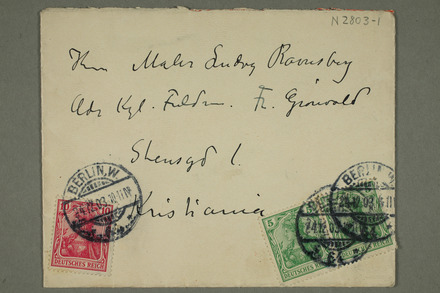 N 2803-1
Herrn Maler Ludvig Ravensberg
Adr Kgl. Fuldm. Fr. Grönvold
Stensgd 1.
Kristiania
BERLIN, W.
10 10
DEUTSCHES REICH
5
DEUTSCHES REICH